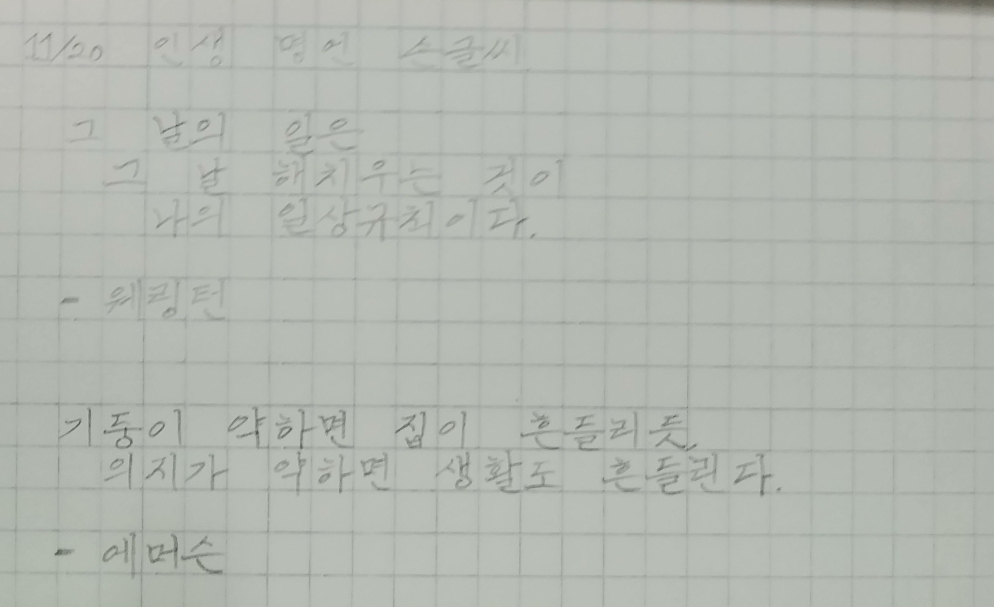 11/20 인생 명언 손글씨
그 날의 일은
그 날 해치우는 것이
나의 일상규칙이다.
- 워링턴
기둥이 약하면 집이 흔들리듯,
의지가 약하면 생활도 흔들린다.
- 에머슨